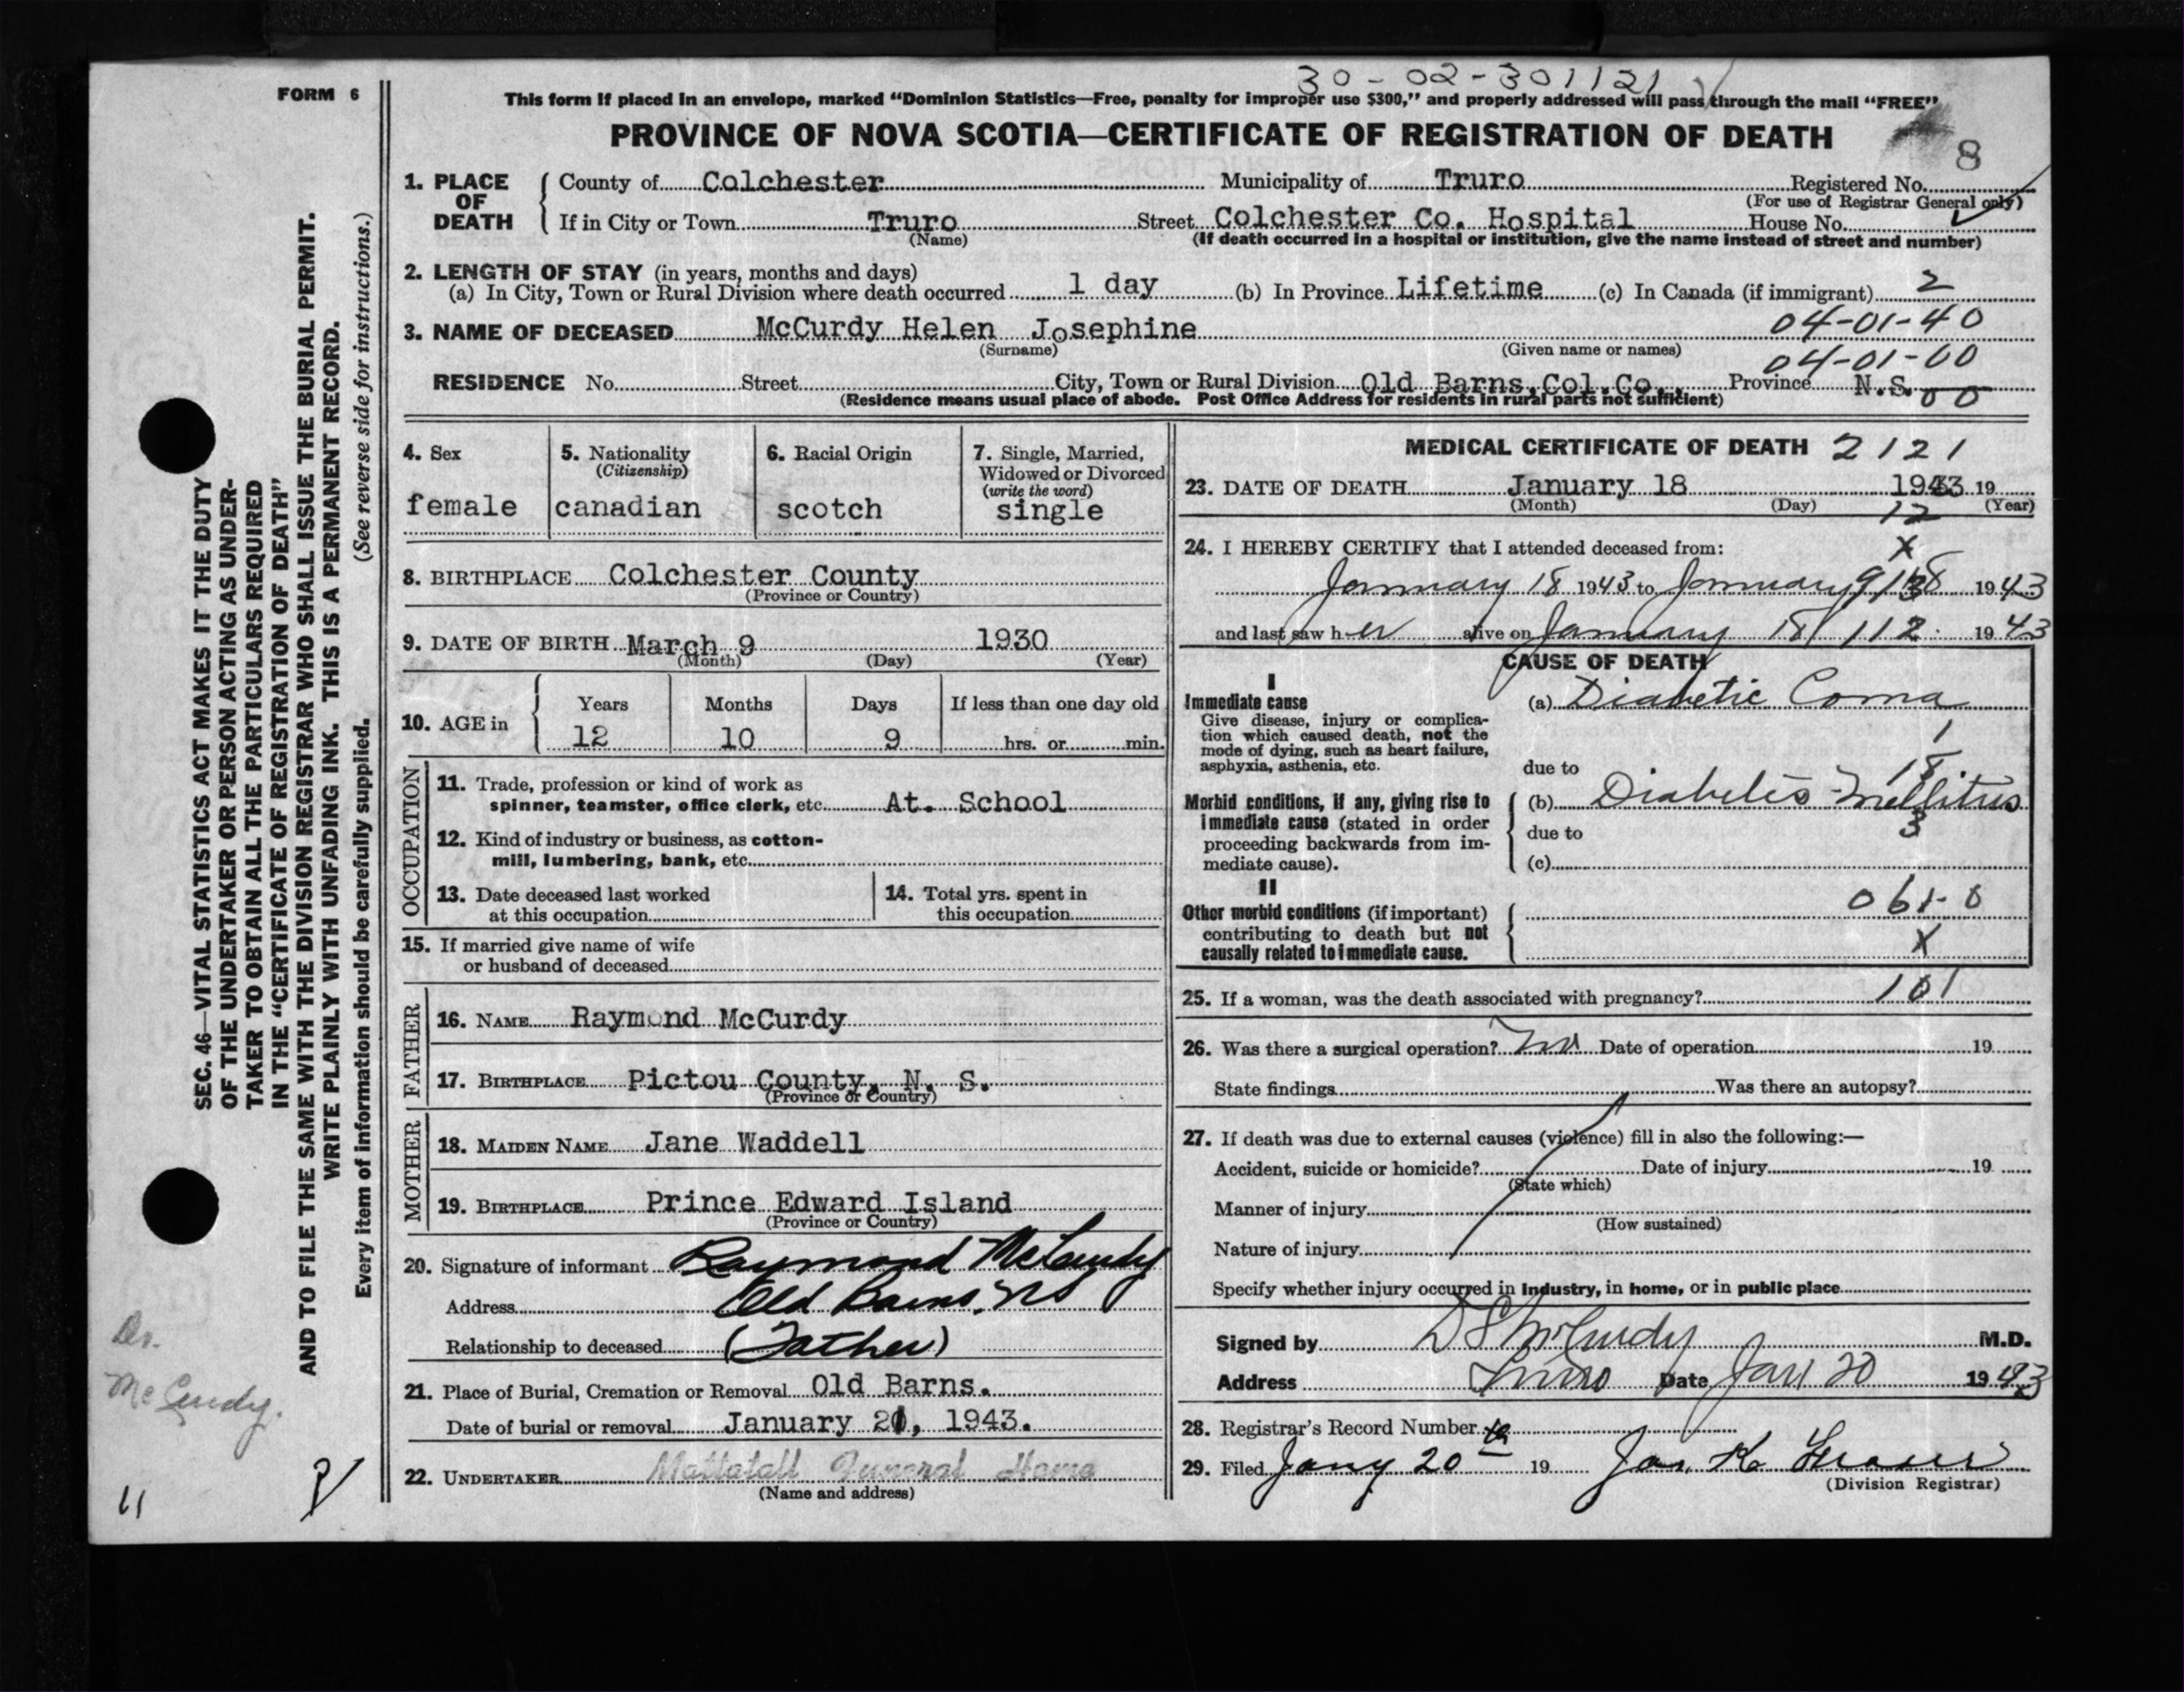 30-02-301121
FORM 6
This form if placed in an envelope, marked “Dominion Statistics—Free, penalty for improper use $300,” and properly addressed will pass through the mail “FREE”
PROVINCE OF NOVA SCOTIA—CERTIFICATE OF REGISTRATION OF DEATH
8
1. PLACE OF DEATH
County of Colchester Municipality of Truro Registered No.
(For use of Registrar General only)
If in City or Town Truro Street Colchester Co. Hospital House No.
(Name) (If death occurred in a hospital or institution, give the name instead of street and number)
2. LENGTH OF STAY (in years, months and days)
(a) In City, Town or Rural Division where death occurred 1 day (b) In Province Lifetime (c) In Canada (if immigrant) 2
04-01-40
3. NAME OF DECEASED McCurdy Helen Josephine
(Surname) (Given name or names)
04-01-00
RESIDENCE No. Street City, Town or Rural Division Old Barns, Col. Co., Province N.S. 00
(Residence means usual place of abode. Post Office Address for residents in rural parts not sufficient)
4. Sex
female
5. Nationality
(Citizenship)
canadian
6. Racial Origin
scotch
7. Single, Married,
Widowed or Divorced
(write the word)
single
8. BIRTHPLACE Colchester County
(Province or Country)
9. DATE OF BIRTH March 9 1930
(Month) (Day) (Year)
10. AGE in
Years Months Days If less than one day old
12 10 9 hrs. or min.
OCCUPATION
11. Trade, profession or kind of work as
spinner, teamster, office clerk, etc. At. School
12. Kind of industry or business, as cotton-
mill, lumbering, bank, etc.
13. Date deceased last worked
at this occupation
14. Total yrs. spent in
this occupation
15. If married give name of wife
or husband of deceased
FATHER
16. NAME Raymond McCurdy
17. BIRTHPLACE Pictou County, N. S.
(Province or Country)
MOTHER
18. MAIDEN NAME Jane Waddell
19. BIRTHPLACE Prince Edward Island
(Province or Country)
20. Signature of informant Raymond McCurdy
Address Old Barns, NS
Relationship to deceased (Father)
21. Place of Burial, Cremation or Removal Old Barns.
Date of burial or removal January 21, 1943.
22. UNDERTAKER Mattatall Funeral Home
(Name and address)
MEDICAL CERTIFICATE OF DEATH 2121
23. DATE OF DEATH January 18 1943 19
(Month) (Day) (Year)
12
24. I HEREBY CERTIFY that I attended deceased from: X
January 18 1943 to January 18 1943
and last saw her alive on January 18 112 1943
CAUSE OF DEATH
I
Immediate cause
Give disease, injury or complica-
tion which caused death, not the
mode of dying, such as heart failure,
asphyxia, asthenia, etc.
(a) Diabetic Coma
1
18
due to
Morbid conditions, if any, giving rise to
immediate cause (stated in order
proceeding backwards from im-
mediate cause).
(b) Diabetes Mellitus
3
due to
(c)
II
Other morbid conditions (if important)
contributing to death but not
causally related to immediate cause.
061-0
X
25. If a woman, was the death associated with pregnancy? 101
26. Was there a surgical operation? No Date of operation 19
State findings Was there an autopsy?
27. If death was due to external causes (violence) fill in also the following:—
Accident, suicide or homicide? Date of injury 19
(State which)
Manner of injury
(How sustained)
Nature of injury
Specify whether injury occurred in Industry, in home, or in public place
Signed by D S McCurdy M.D.
Address Truro Date Jan 20 1943
28. Registrar's Record Number
29. Filed Jany 20th 19 Jas. K Fraser
(Division Registrar)
SEC. 46—VITAL STATISTICS ACT MAKES IT THE DUTY
OF THE UNDERTAKER OR PERSON ACTING AS UNDER-
TAKER TO OBTAIN ALL THE PARTICULARS REQUIRED
IN THE “CERTIFICATE OF REGISTRATION OF DEATH”
AND TO FILE THE SAME WITH THE DIVISION REGISTRAR WHO SHALL ISSUE THE BURIAL PERMIT.
WRITE PLAINLY WITH UNFADING INK. THIS IS A PERMANENT RECORD.
Every item of information should be carefully supplied. (See reverse side for instructions.)
Dr.
McCurdy.
11